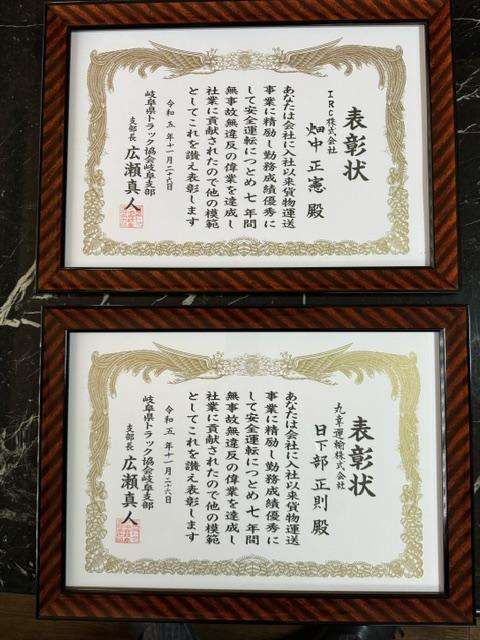 表彰状
IRC株式会社
畑中正憲殿
あなたは会社に入社以来貨物運送
事業に精励し勤務成績優秀に
して安全運転につとめ七年間
無事故無違反の偉業を達成し
社業に貢献されたので他の模範
としてこれを讃え表彰します
令和五年十一月二十六日
岐阜県トラック協会岐阜支部
支部長 広瀬真人
表彰状
丸幸運輸株式会社
日下部正則殿
あなたは会社に入社以来貨物運送
事業に精励し勤務成績優秀に
して安全運転につとめ七年間
無事故無違反の偉業を達成し
社業に貢献されたので他の模範
としてこれを讃え表彰します
令和五年十一月二十六日
岐阜県トラック協会岐阜支部
支部長 広瀬真人